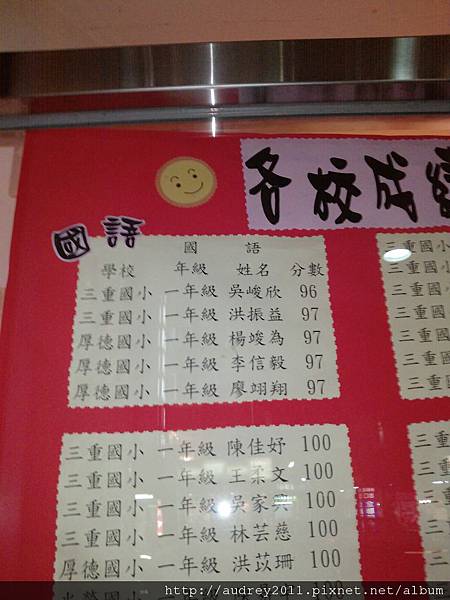 各校成績
國語
國 語
學校 年級 姓名 分數
三重國小 一年級 吳峻欣 96
三重國小 一年級 洪振益 97
厚德國小 一年級 楊竣為 97
厚德國小 一年級 李信毅 97
厚德國小 一年級 廖翊翔 97
三重國小 一年級 陳佳妤 100
三重國小 一年級 王柔文 100
三重國小 一年級 吳家興 100
三重國小 一年級 林芸慈 100
厚德國小 一年級 洪苡珊 100
三重國小
三重國小
三重國小
三重國小
三重國小
三重國小
http://audrey2011.pixnet.net/album